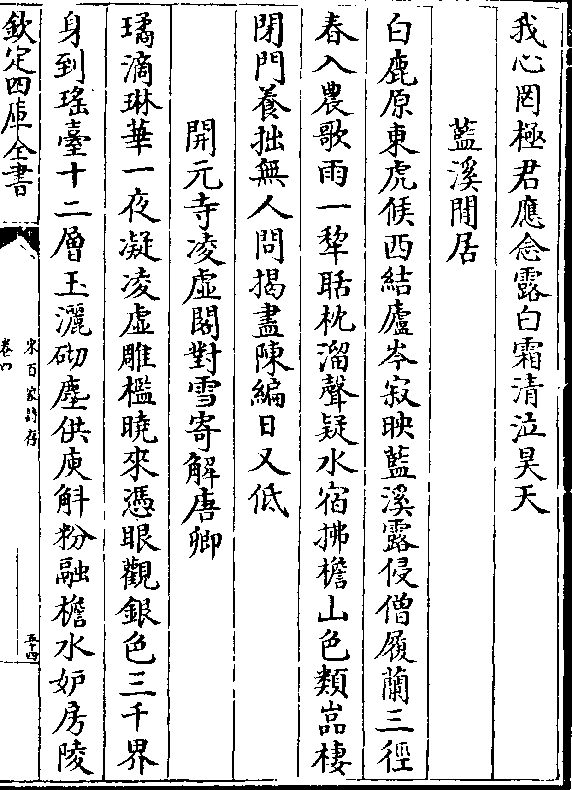 我心罔極君應念露白霜清泣昊天
藍溪閒居
白鹿原東虎候西結廬岑寂映藍溪露侵僧履蘭三徑
春入農歌雨一犂聒枕溜聲疑水宿拂檐山色類嵓棲
閉門養拙無人問揭盡陳編日又低
開元寺凌虛閣對雪寄解唐卿
璚滴琳華一夜凝凌虛雕檻曉來憑眼觀銀色三千界
身到瑤臺十二層玉灑砌塵供庾斛粉融檐水妒房陵
欽定四庫全書
宋百家詩存
卷四
五十四